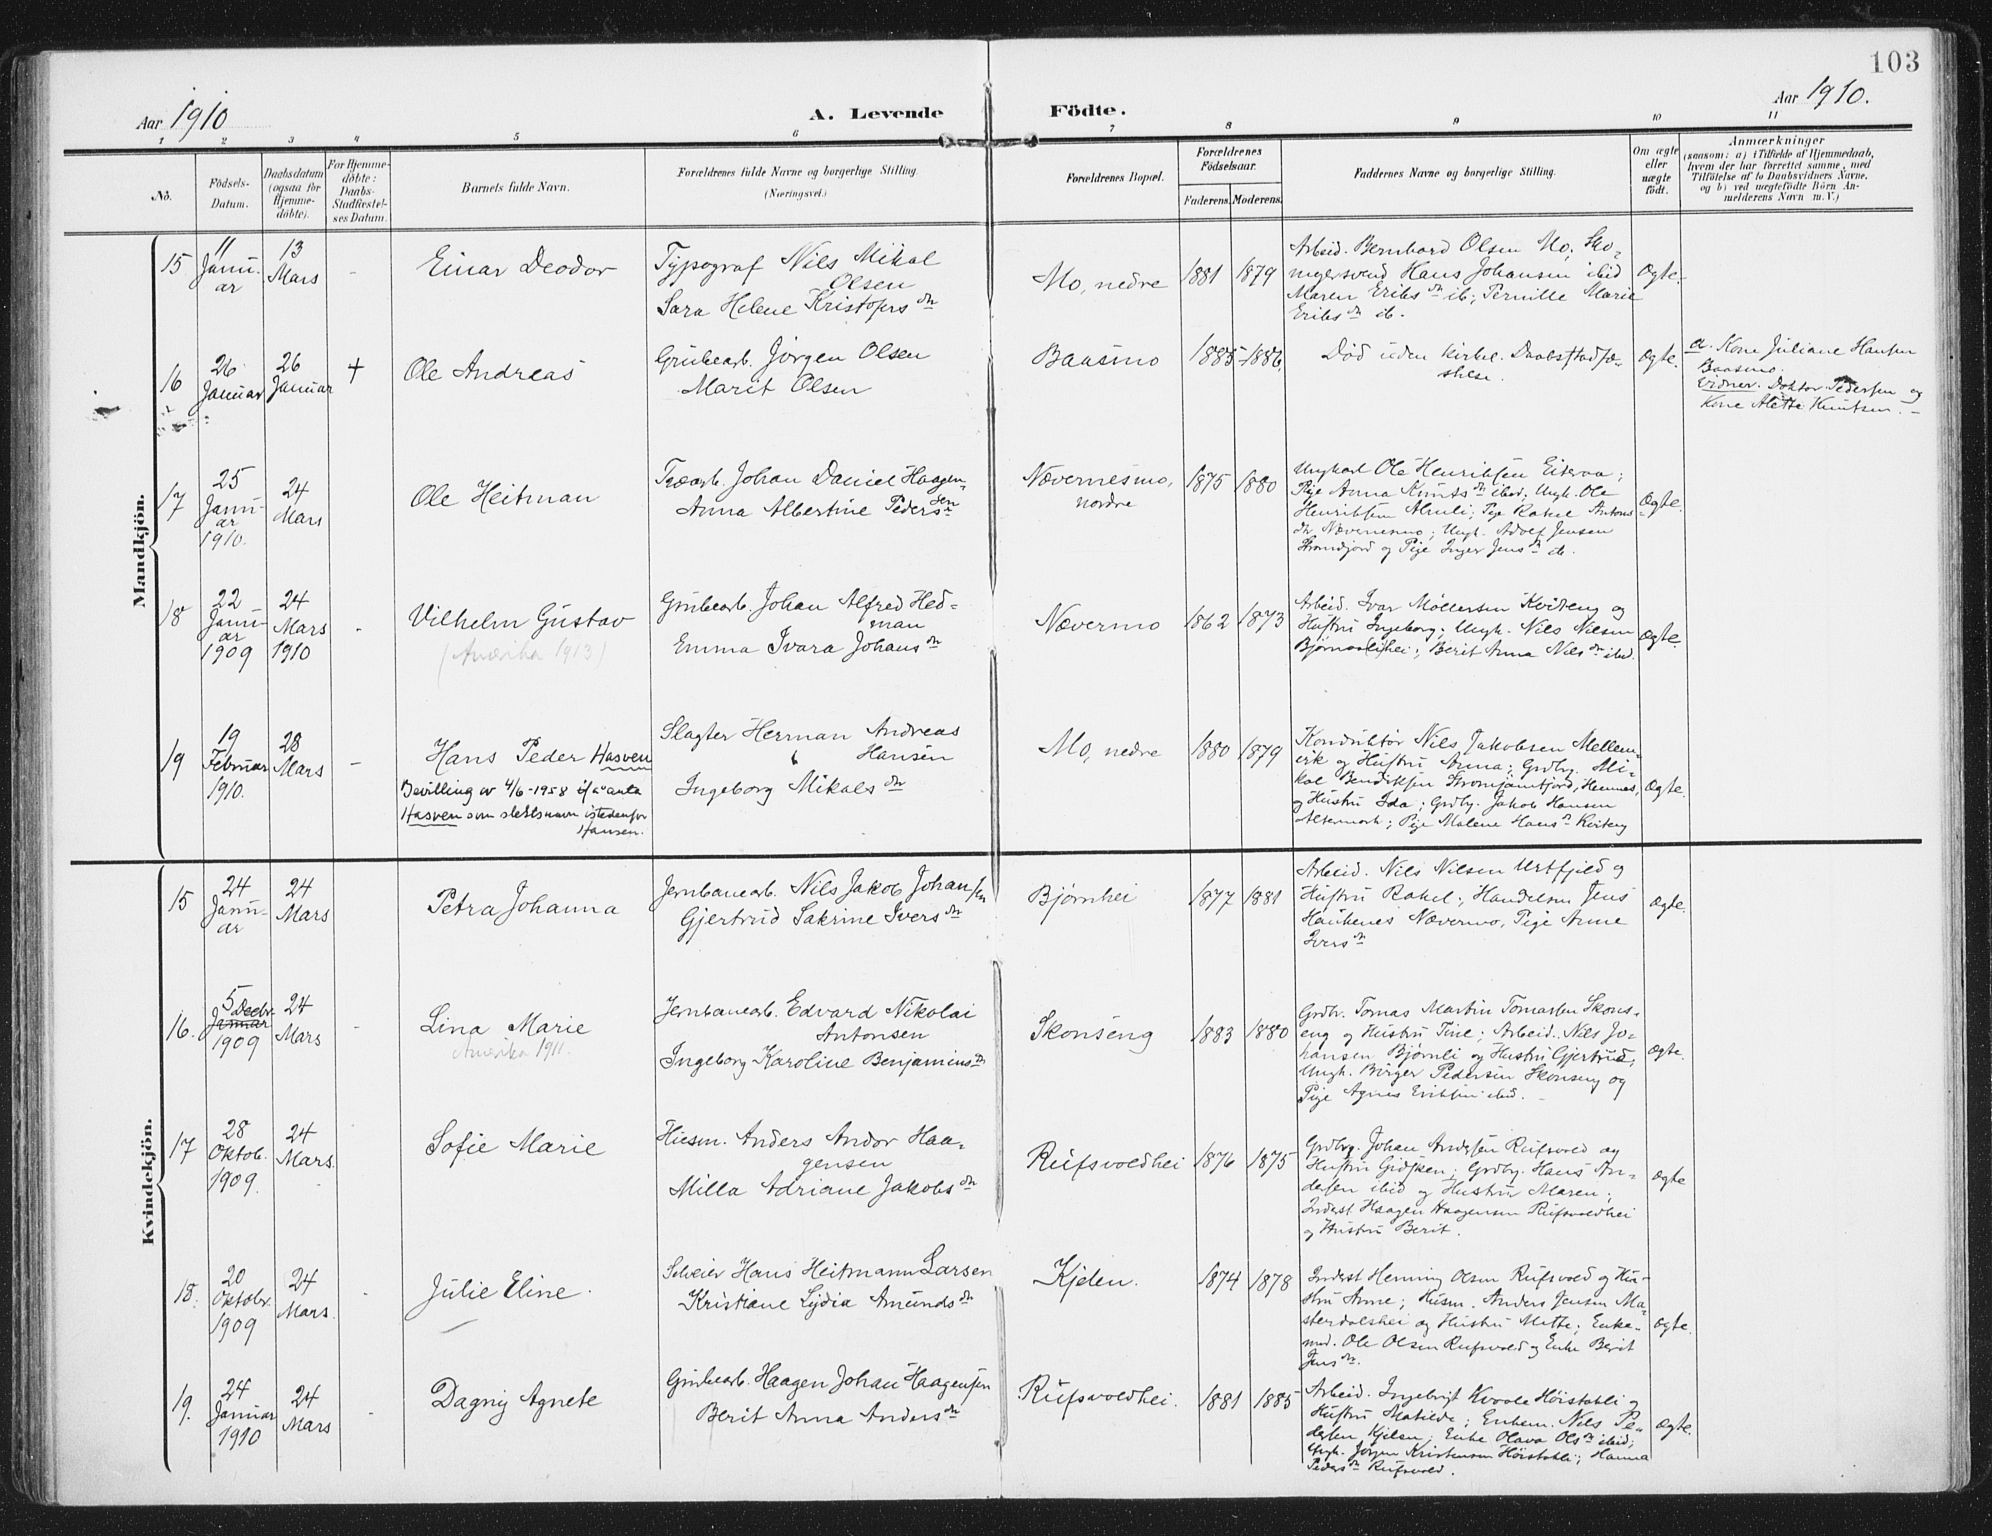 103
Aar 1910
A. Levende Födte.
Aar 1910.
1 2 3 4 5 6 7 8 9 10 11
No.
Födsels-
Datum.
Daabsdatum
(ogsaa for
Hjemme-
döbte).
For Hjemme-
döbte:
Daabs-
Stadfæstel-
ses Datum.
Barnets fulde Navn.
Forældrenes fulde Navne og borgerlige Stilling.
(Næringsvei.)
Forældrenes Bopæl.
Forældrenes
Födselsaar.
Faderens. Moderens.
Faddernes Navne og borgerlige Stilling.
Om ægte
eller
uægte
födt.
Anmærkninger
(saasom: a) i Tilfælde af Hjemmedaab,
hvem der har forrettet samme, med
Tilföielse af to Daabsvidners Navne,
og b) ved uægtefödte Börn An-
melderens Navn m.V.)
Mandkjön.
15
11
Janu-
ar
13
Mars
-
Einar Deodor
Typograf Nils Mikal
Olsen
Sara Helene Kristofers dr
Mo, nedre
1881
1879
Arbeid. Bernhard Olsen Mo; Sko-
magersvend Hans Johansen ibid
Maren Eriks dr ib; Pernille Marie
Eriks dr ib.
Ægte.
16
26
Januar
26
Januar
+
Ole Andreas
Grubearb. Jörgen Olsen
Marit Olsen
Baasmo
1885
1886.
Död uden kirkel. Daabsstadfæ-
stelse.
Ægte.
a. Kone Juliane Hansen
Baasmo.
Vidner. Doktor Pedersen og
Kone Alette Knutsen.
17
25
Janu-
ar
1910.
24
Mars
Ole Heitman
Træarb. Johan Daniel Haagen-
sen
Anna Albertine Peders dr
Nævernesmo,
nordre
1875
1880
Ungkarl Ole Henriksen Eiteraa;
Pige Anna Knuts dr ibid; Ungk. Ole
Henriksen Almli; Pige Rakel Antons
dr. Nævernesmo; Ungk. Adolf Jensen
Strandjord og Pige Inger Jens dr ib.
Ægte.
18
22
Janu-
ar
1909
24
Mars
1910
-
Vilhelm Gustav
(Amerika 1913)
Grubearb. Johan Alfred Hed-
man
Emma Ivara Johans dr
Nævermo
1862
1873
Arbeid. Ivar Möllersen Kviteng og
Hustru Ingeborg; Ungk. Nils Nilsen
Björnaa(li)hei; Berit Anna Nils dr ibid.
Ægte.
19
19
Februar
1910.
28
Mars
-
Hans Peder Hasven
Bevilling av 4/6-1958 til å anta
Hasven som slektsnavn istedenfor
Hansen.
Slagter Herman Andreas
Hansen
Ingeborg Mikals dr
Mo, nedre
1880
1879
Konduktör Nils Jakobsen Mellem-
vik og Hustru Anna; Grdbr. Mi-
kal Bendiksen Strömjamtjord, Hemnes,
og Hustru Ida; Grdbr. Jakob Hansen
Altermark; Pige Malene Hans dr Kviteng
Ægte.
Kvindekjön.
15
24
Janu-
ar
24
Mars
Petra Johanna
Jernbanearb. Nils Jakob Johansen
Gjertrud Sakrine Ivers dr
Björnhei
1877
1881
Arbeid. Nils Nilsen Urtfjeld og
Hustru Rakel; Handelsm Jens
Haukenes Nævermo, Pige Anne
Ivers dr
Ægte.
16.
5 Decbr.
Januar
1909
24
Mars
-
Lina Marie
Amerika 1911.
Jernbanearb. Edvard Nikolai
Antonsen
Ingeborg Karoline Benjamins dr
Skonseng
1883
1880
Grdbr. Tomas Martin Tomassen Skons-
eng og Hustru Tine; Arbeid. Nils Jo-
hansen Björnli og Hustru Gjertrud;
Ungk. Birger Pedersen Skonseng og
Pige Agnes Eriksen ibid.
Ægte.
17
28
Oktob.
1909.
24
Mars.
Sofie Marie
Husm. Anders Andor Haa-
gensen
Milla Adriane Jakobs dr
Rufsvoldhei
1876
1875
Grdbr. Johan Andersen Rufsvold og
Hustru Gidsken; Grdbr. Hans An-
dersen ibid og Hustru Maren;
Inderst Haagen Haagensen Rufsvoldhei
og Hustru Berit.
Ægte
18.
20
Oktobr.
1909
24
Mars.
Julie Eline.
Selveier Hans Heitmann Larsen
Kristiane Lydia Amunds dr
Kjelen.
1874
1878
Inderst Henning Olsen Rufsvold og Hu-
stru Anne; Husm. Anders Jensen Ma-
sterdalshei og Hustru Mette; Enke-
md. Ole Olsen Rufsvold og Enke Berit
Jens dr.
Ægte.
19.
24
Januar
1910
24
Mars
Dagny Agnete
Grubearb. Haagen Johan Haagensen
Berit Anna Anders dr
Rufsvoldhei.
1881
1885
Arbeid. Ingebrigt Kvoole Höistabli og
Hustru Matilde; Enkem. Nils Pe-
dersen Kjelen; Enke Olava Ols dr ibid;
Ungk. Jörgen Kristensen Höistabli; Hanna
Peders dr Rufsvold.
Ægte.